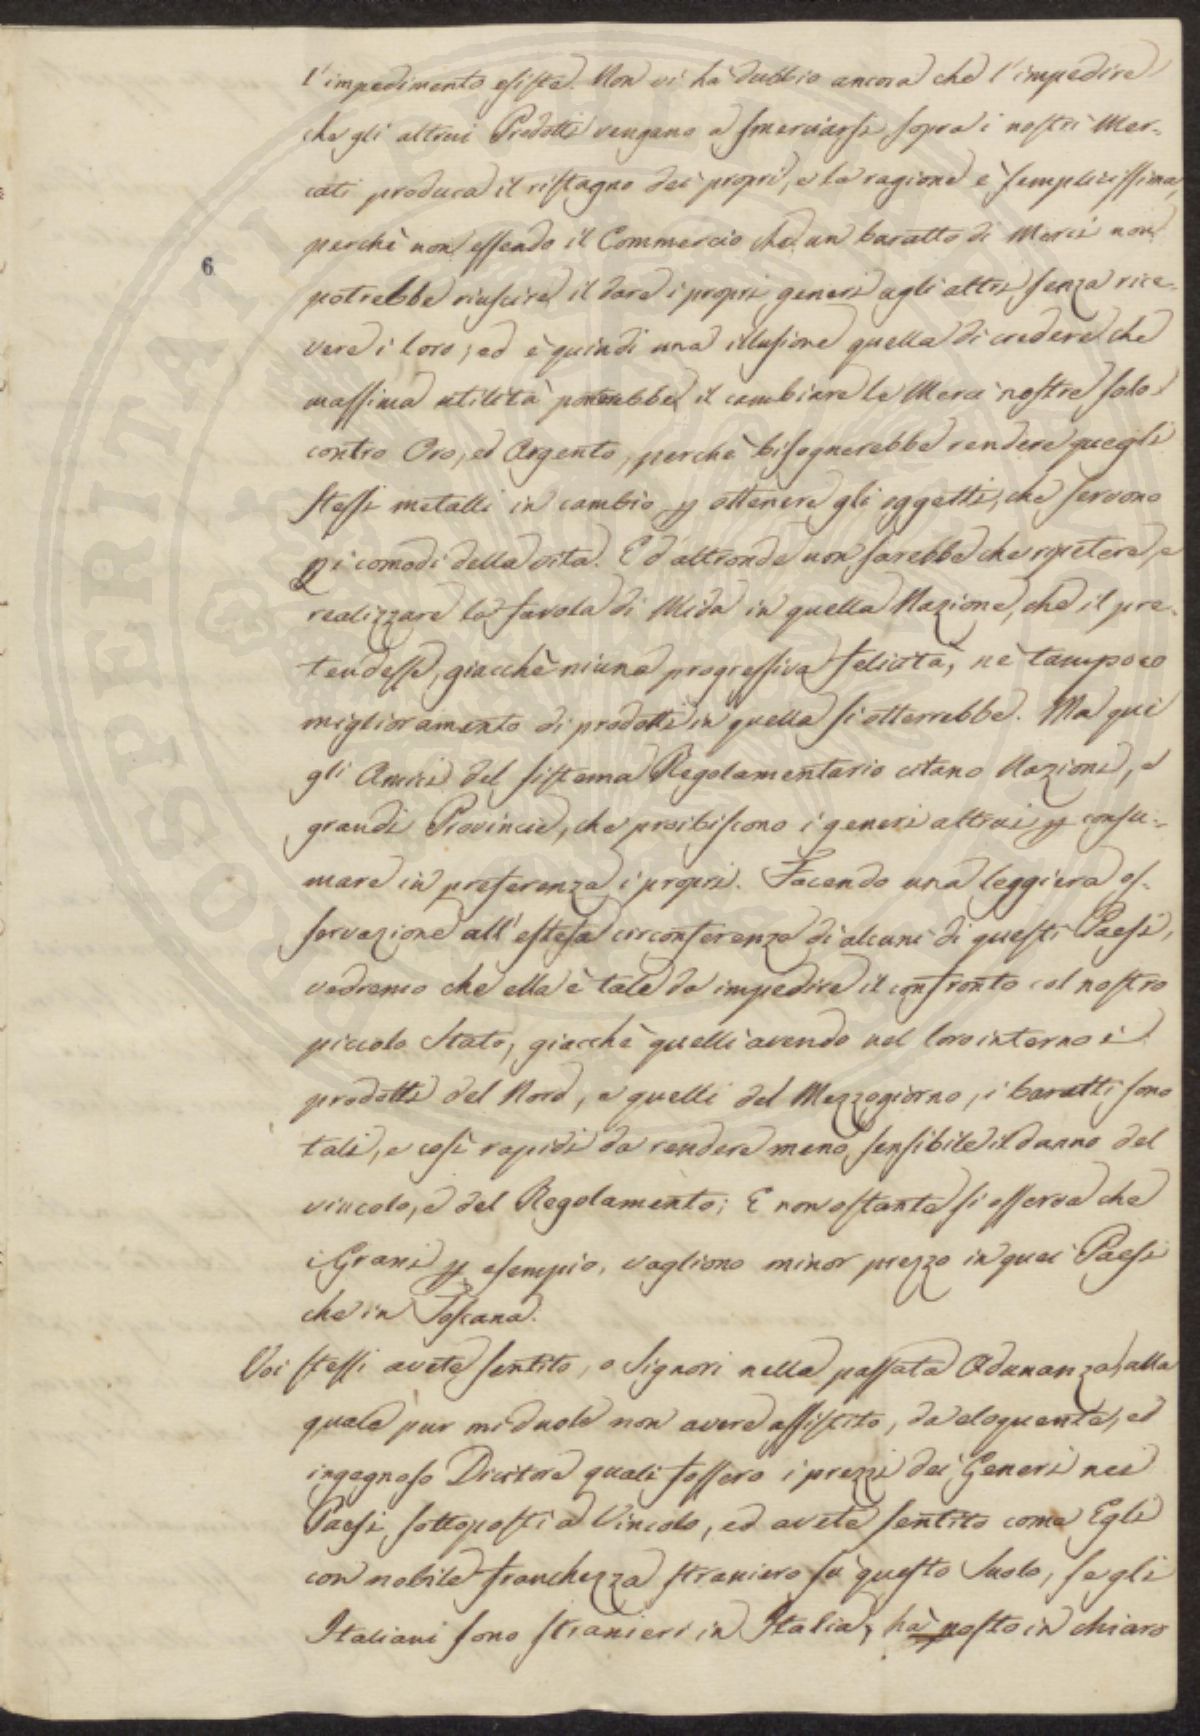 l'impedimento esiste. Non vi ha dubbio ancora che l'impedire
che gli altrui Prodotti vengano a smerciarsi sopra i nostri Mer-
cati produca il ristagno dei propri, e la ragione è semplicissima,
perchè non essendo il Commercio che un baratto di Merci non
6
potrebbe riuscire il dare i propri generi agli altri senza rice-
vere i loro; ed è quindi una illusione quella di credere che
massima utilità porterebbe il cambiare le Merci nostre solo
contro Oro, ed Argento, perchè bisognerebbe rendere quegli
stessi metalli in cambio p ottenere gli oggetti, che servono
pi comodi della vita. E d'altronde non sarebbe che ripetere, e
realizzare la favola di Mida in quella Nazione, che il pre-
tendesse, giacchè niuna progressiva felicità, nè tampoco
miglioramento di prodotti in quella si otterrebbe. Ma qui
gli Amici del sistema Regolamentario citano Nazioni, e
grandi Provincie, che proibiscono i generi altrui p consu-
mare in preferenza i propri. Facendo una leggiera os-
servazione all'estesa circonferenza di alcuni di questi Paesi,
vedremo che ella è tale da impedire il confronto col nostro
piccolo Stato, giacchè quelli avendo nel loro interno i
prodotti del Nord, e quelli del Mezzogiorno, i baratti sono
tali, e così rapidi da rendere meno sensibile il danno del
vincolo, e del Regolamento; E non ostante si osserva che
i Grani p esempio, vagliono minor prezzo in quei Paesi
che in Toscana.
Voi stessi avete sentito, o Signori nella passata Adunanza, alla
quale pur mi duole non avere assistito, da eloquente, ed
ingegnoso Dicitore quali fossero i prezzi dei Generi nei
Paesi sottoposti a Vincolo, ed avete sentito come Egli
con nobile franchezza straniero su questo Suolo, se gli
Italiani sono stranieri in Italia, ha posto in chiaro
PROSPERITATI